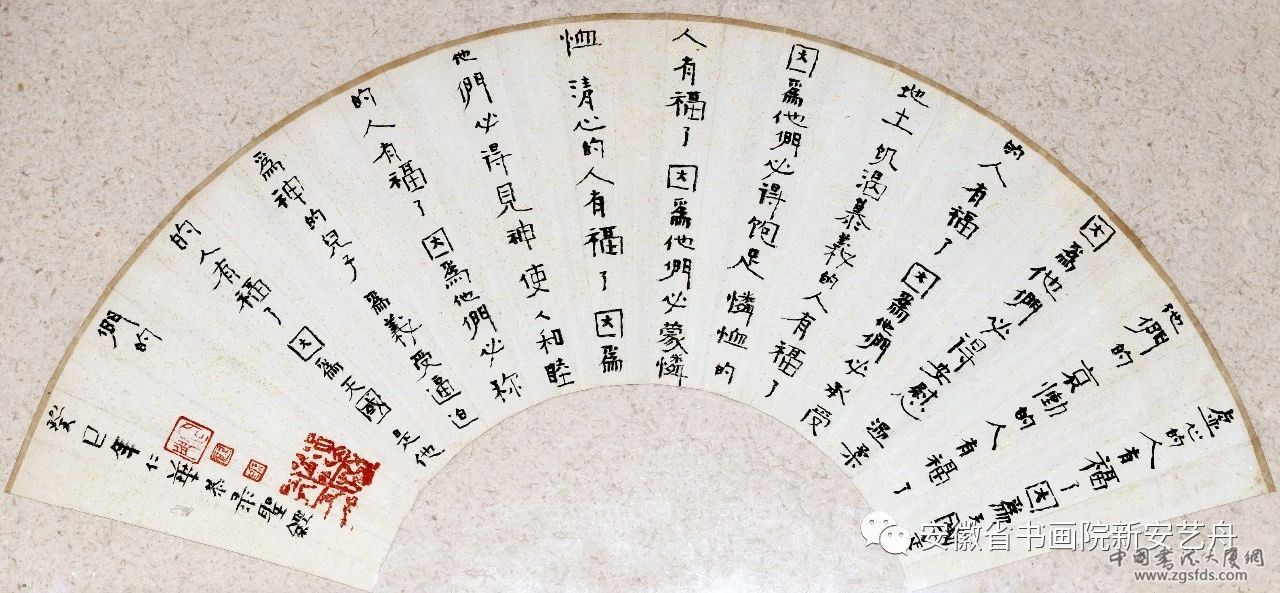 虚心的人有福了 因爲天國是
他們的 哀慟的人有福了
因爲他們必得安慰 温柔
的人有福了 因爲他們必承受
地土 饥渴慕義的人有福了
因爲他們必得饱足 憐恤的
人有福了 因爲他們必蒙憐
恤 清心的人有福了 因爲
他們必得見神 使人和睦
的人有福了 因爲他們必称
爲神的兒子 爲義受逼迫
的人有福了 因爲天國是他
們的
癸巳年仁華恭录聖經
安徽省书画院新安艺舟
中国书法大厦網
www.zgsfds.com